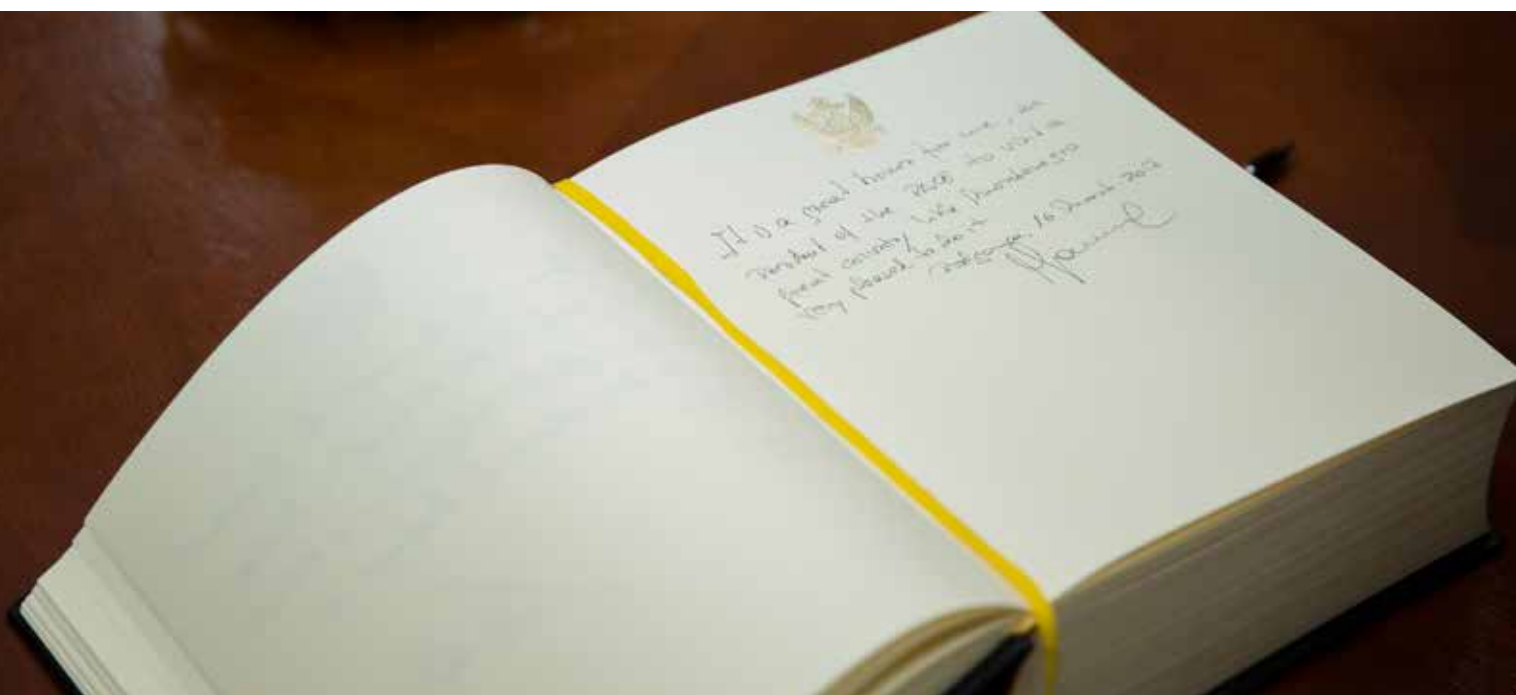 It is a great honor for me, as
President of the to visit a
great country like Montenegro
very pleased to do it
Podgorica, 16 March 2012